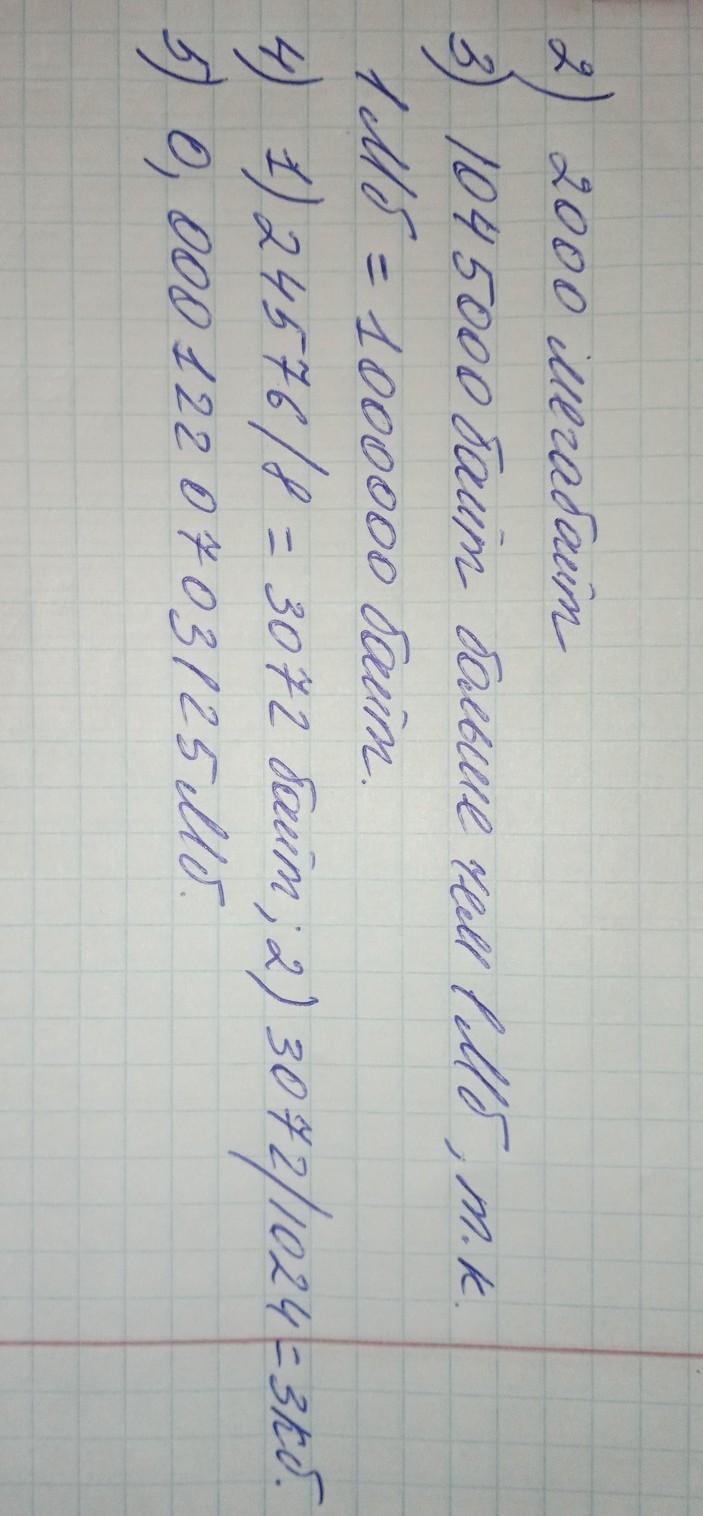 2) 2000 мегабайт
3) 1045000 байт больше чем 1Мб, т.к.
1Мб = 1000000 байт.
4) 1) 24576/8 = 3072 байт; 2) 3072/1024 = 3Кб.
5) 0,0001220703125Мб.